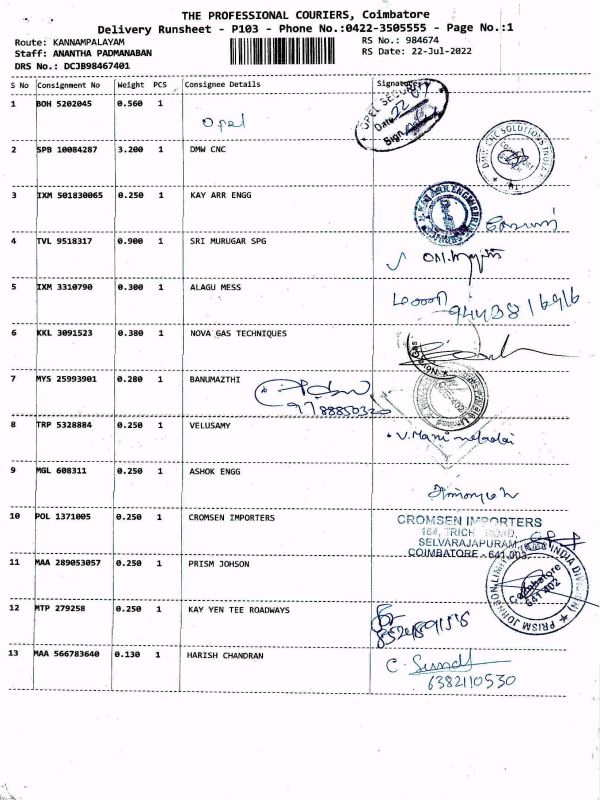 THE PROFESSIONAL COURIERS, Coimbatore
Delivery Runsheet - P103 - Phone No.:0422-3505555 - Page No.:1
Route: KANNAMPALAYAM
RS No.: 984674
Staff: ANANTHA PADMANABAN
RS Date: 22-Jul-2022
DRS No.: DCJB98467401
S No Consignment No Weight PCS Consignee Details Signature
1 BOH 5202045 0.560 1 Opel
OPEL SECURITY
Date 22/07
Sign
2 SPB 10084287 3.200 1 DMW CNC
DMW CNC SOLUTIONS INDIA
3 IXM 501830065 0.250 1 KAY ARR ENGG
4 TVL 9518317 0.900 1 SRI MURUGAR SPG
5 IXM 3310790 0.300 1 ALAGU MESS
6 KKL 3091523 0.380 1 NOVA GAS TECHNIQUES
7 MYS 25993901 0.280 1 BANUMAZTHI
9788850320
8 TRP 5328884 0.250 1 VELUSAMY
V. Mani
9 MGL 608311 0.250 1 ASHOK ENGG
10 POL 1371005 0.250 1 CROMSEN IMPORTERS
CROMSEN IMPORTERS
164, TRICHY ROAD,
SELVARAJAPURAM,
COIMBATORE - 641 003
11 MAA 289053057 0.250 1 PRISM JOHSON
PRISM JOHNSON LIMITED
INDIA DIVISION
Coimbatore
641 402
12 MTP 279258 0.250 1 KAY YEN TEE ROADWAYS
13 MAA 566783640 0.130 1 HARISH CHANDRAN
C.
6382110530